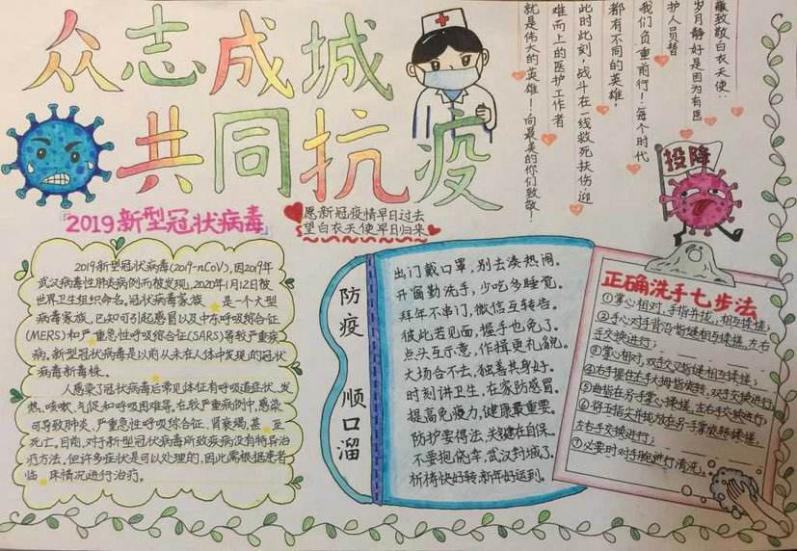 众志成城
共同抗疫
谨致敬白衣天使:
岁月静好是因为有医
护人员替
我们负重前行!每个时代
都有不同的英雄,
此时此刻,战斗在一线救死扶伤,迎
难而上的医护工作者
就是伟大的英雄!向最美的你们致敬!
投降
「2019新型冠状病毒」
愿新冠疫情早日过去
望白衣天使早日归来
2019新型冠状病毒(2019-nCoV),因2019年
武汉病毒性肺炎病例而被发现,2020年1月12日被
世界卫生组织命名。冠状病毒家族 是一个大型
病毒家族,已知可引起感冒以及中东呼吸综合征
(MERS)和严重急性呼吸综合征(SARS)等较严重疾
病。新型冠状病毒是以前从未在人体中发现的冠状
病毒新毒株。
人感染了冠状病毒后常见体征有呼吸道症状、发
热、咳嗽、气促和呼吸困难等。在较严重病例中,感染
可导致肺炎、严重急性呼吸综合征、肾衰竭,甚 至
死亡。目前,对于新型冠状病毒所致疾病没有特异治
疗方法。但许多症状是可以处理的,因此需根据患者
临 床情况进行治疗。
防疫
顺口溜
出门戴口罩,别去凑热闹。
开窗勤洗手,少吃多睡觉。
拜年不串门,微信互转告。
彼此若见面,握手也免了。
点头互示意,作揖更礼貌。
大场合不去,独善其身好。
时刻讲卫生,在家防感冒。
提高免疫力,健康最重要。
防护要得法,关键在自保。
不要抱侥幸,武汉封城了。
祈祷快好转,新年好运到。
正确洗手七步法
①掌心相对,手指并拢,相互揉搓;
②手心对手背沿指缝相互揉搓,左右
手交换进行;
③掌心相对,双手交叉指缝相互揉搓;
④右手握住左手大拇指旋转,双手交换进行;
⑤曲指在另手掌心揉搓,左右手交换进行;
⑥将五指尖并拢放在另手掌旋转揉搓,
左右手交换进行;
⑦必要时对手腕进行清洗;